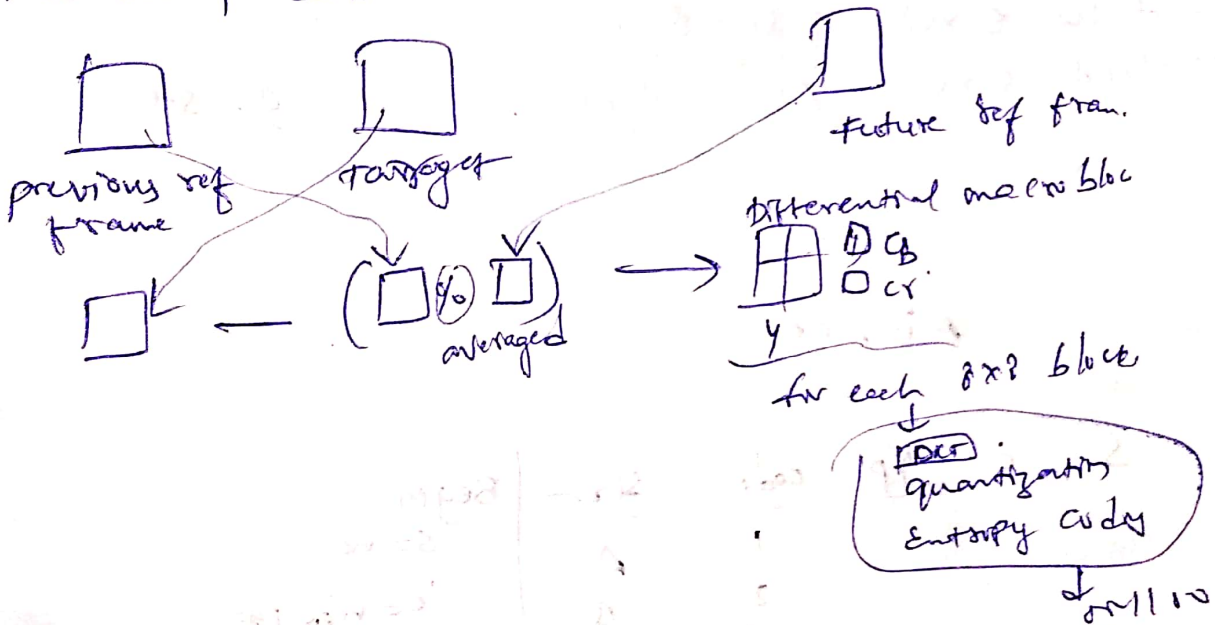 previous ref
frame
target
Future ref fram.
Differential macro bloc
Cb
Cr
Y
( % )
averaged
for each 8x8 block
DCT
quantization
Entropy coding